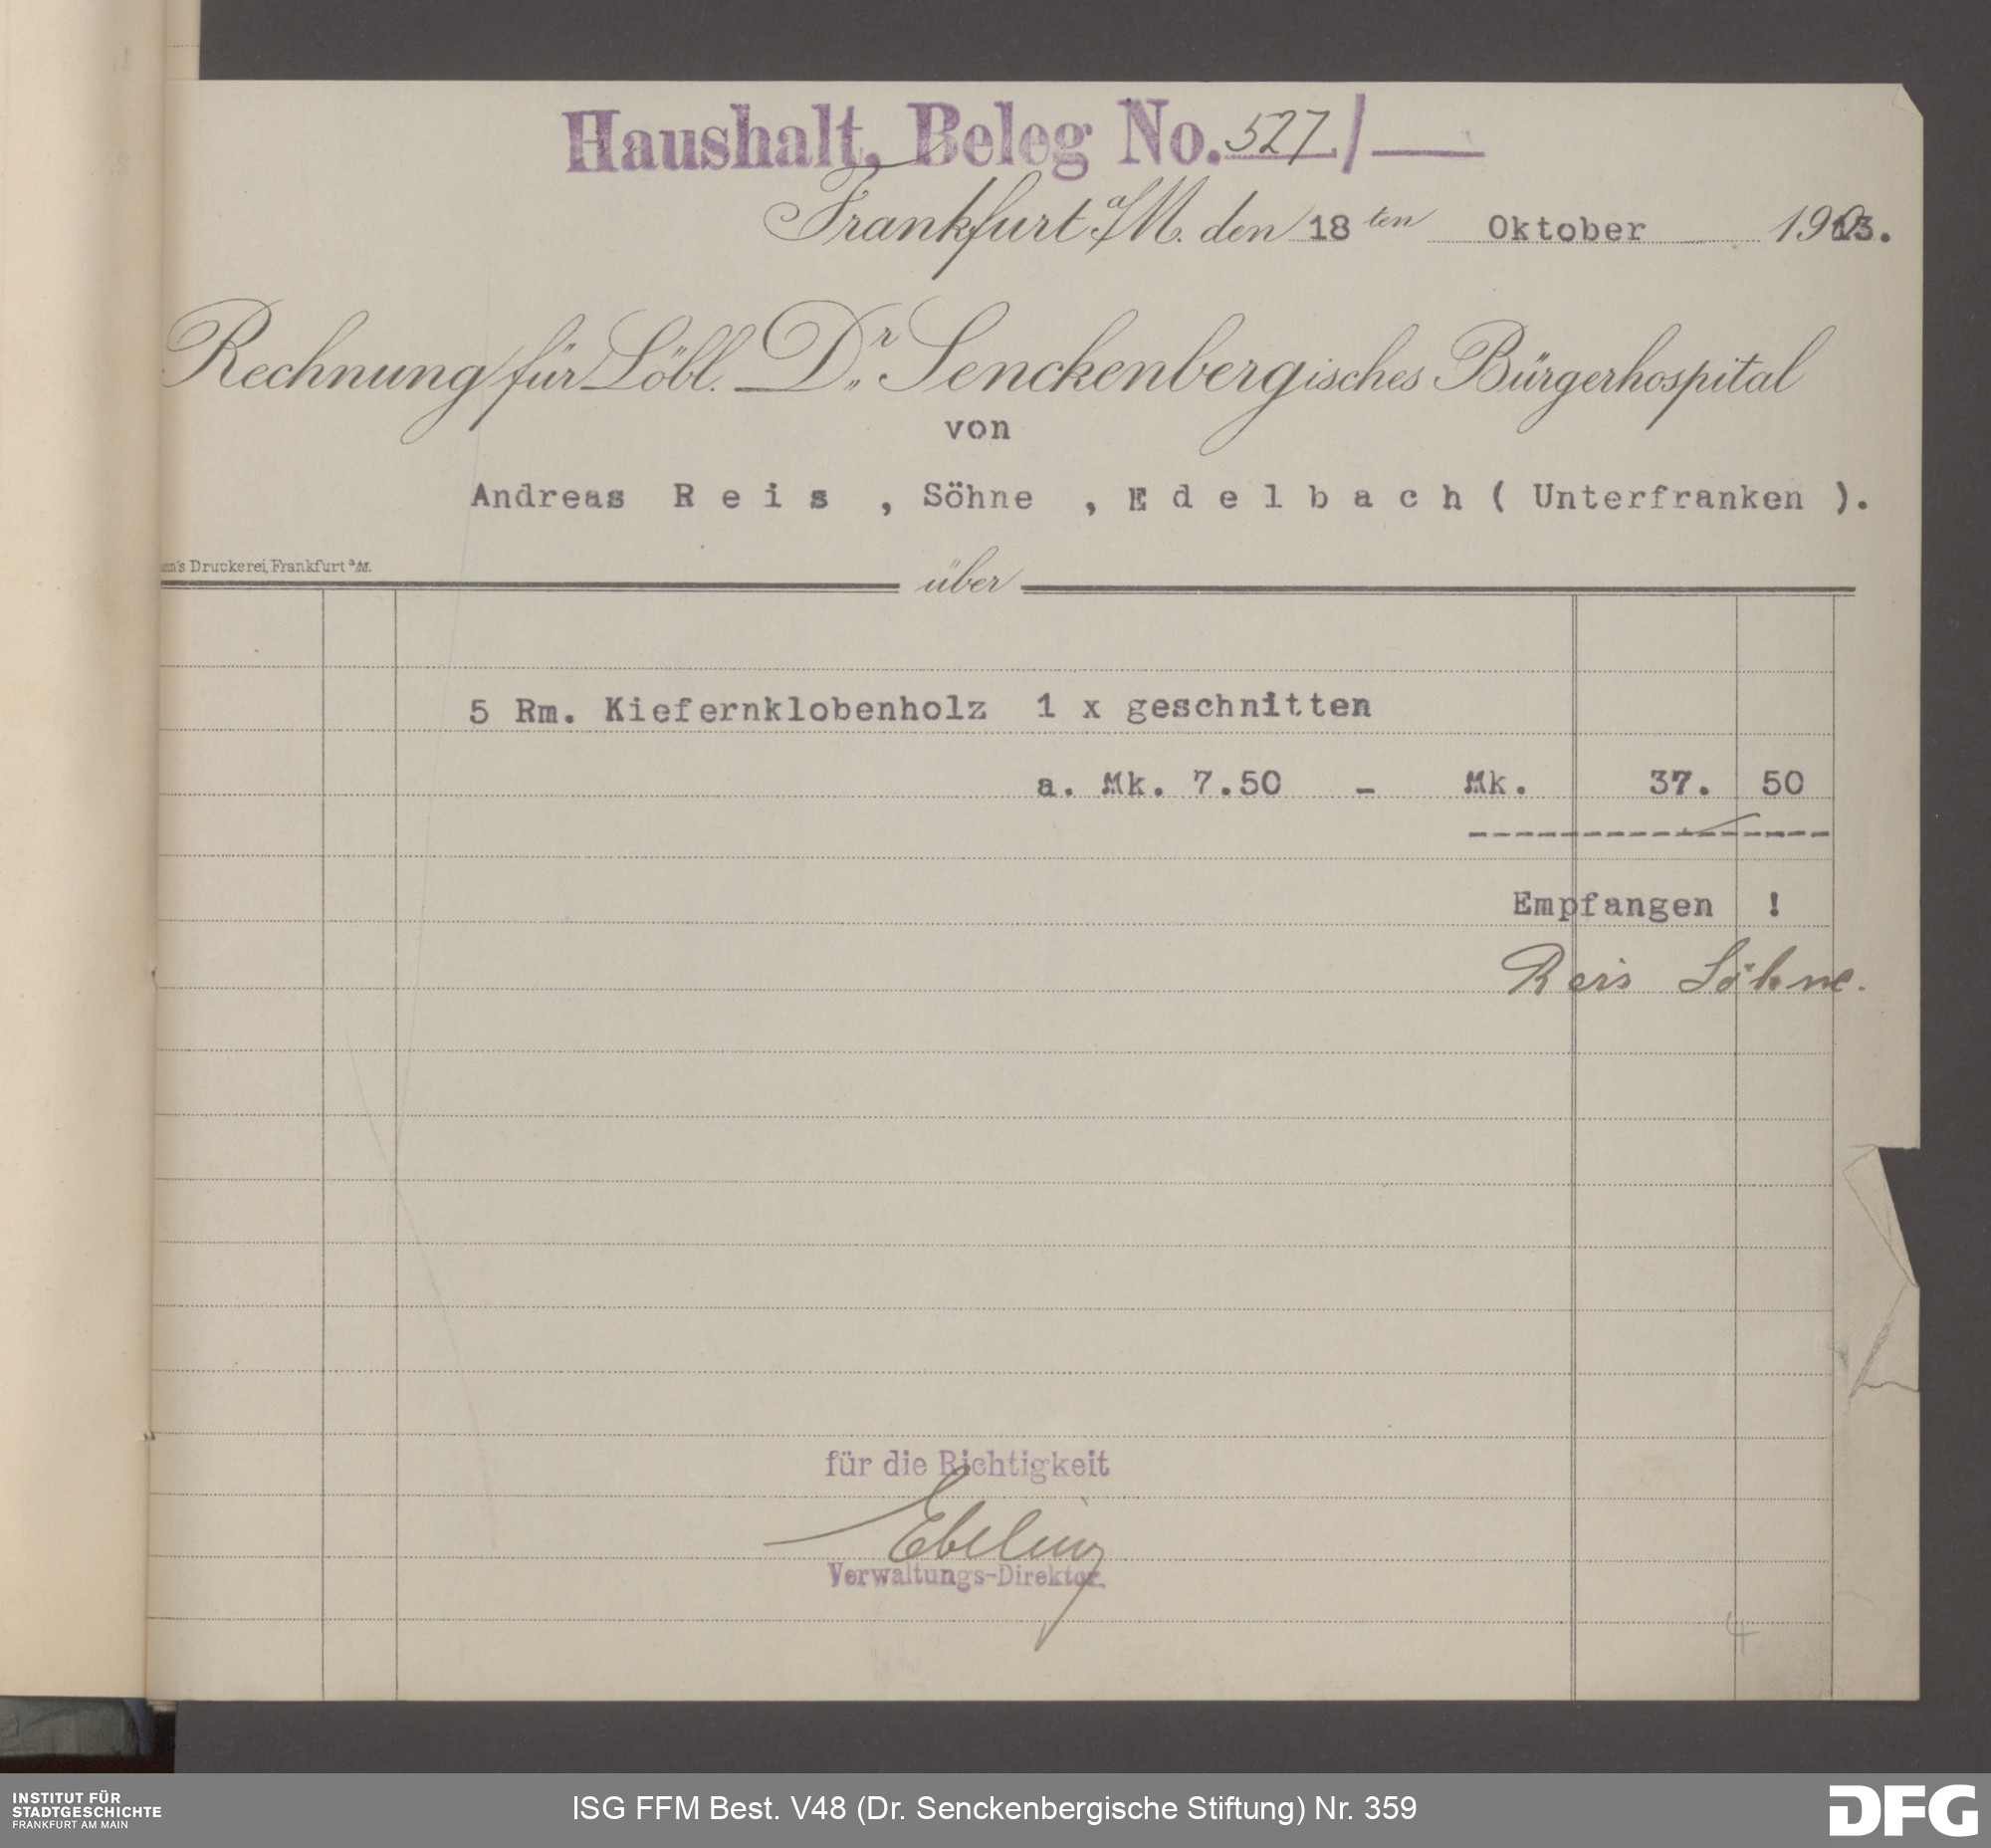 Haushalt, Beleg No. 527/
Frankfurt a/M. den 18ten Oktober 1913.
Rechnung für Löbl. Dr. Senckenbergisches Bürgerhospital
von
Andreas Reis, Söhne, Edelbach (Unterfranken).
Druckerei, Frankfurt a/M.
über
5 Rm. Kiefernklobenholz 1 x geschnitten
a. Mk. 7.50 - Mk. 37. 50
Empfangen !
Reis Söhne.
für die Richtigkeit
Ebeling
Verwaltungs-Direktor.
4
INSTITUT FÜR
STADTGESCHICHTE
FRANKFURT AM MAIN
ISG FFM Best. V48 (Dr. Senckenbergische Stiftung) Nr. 359
DFG